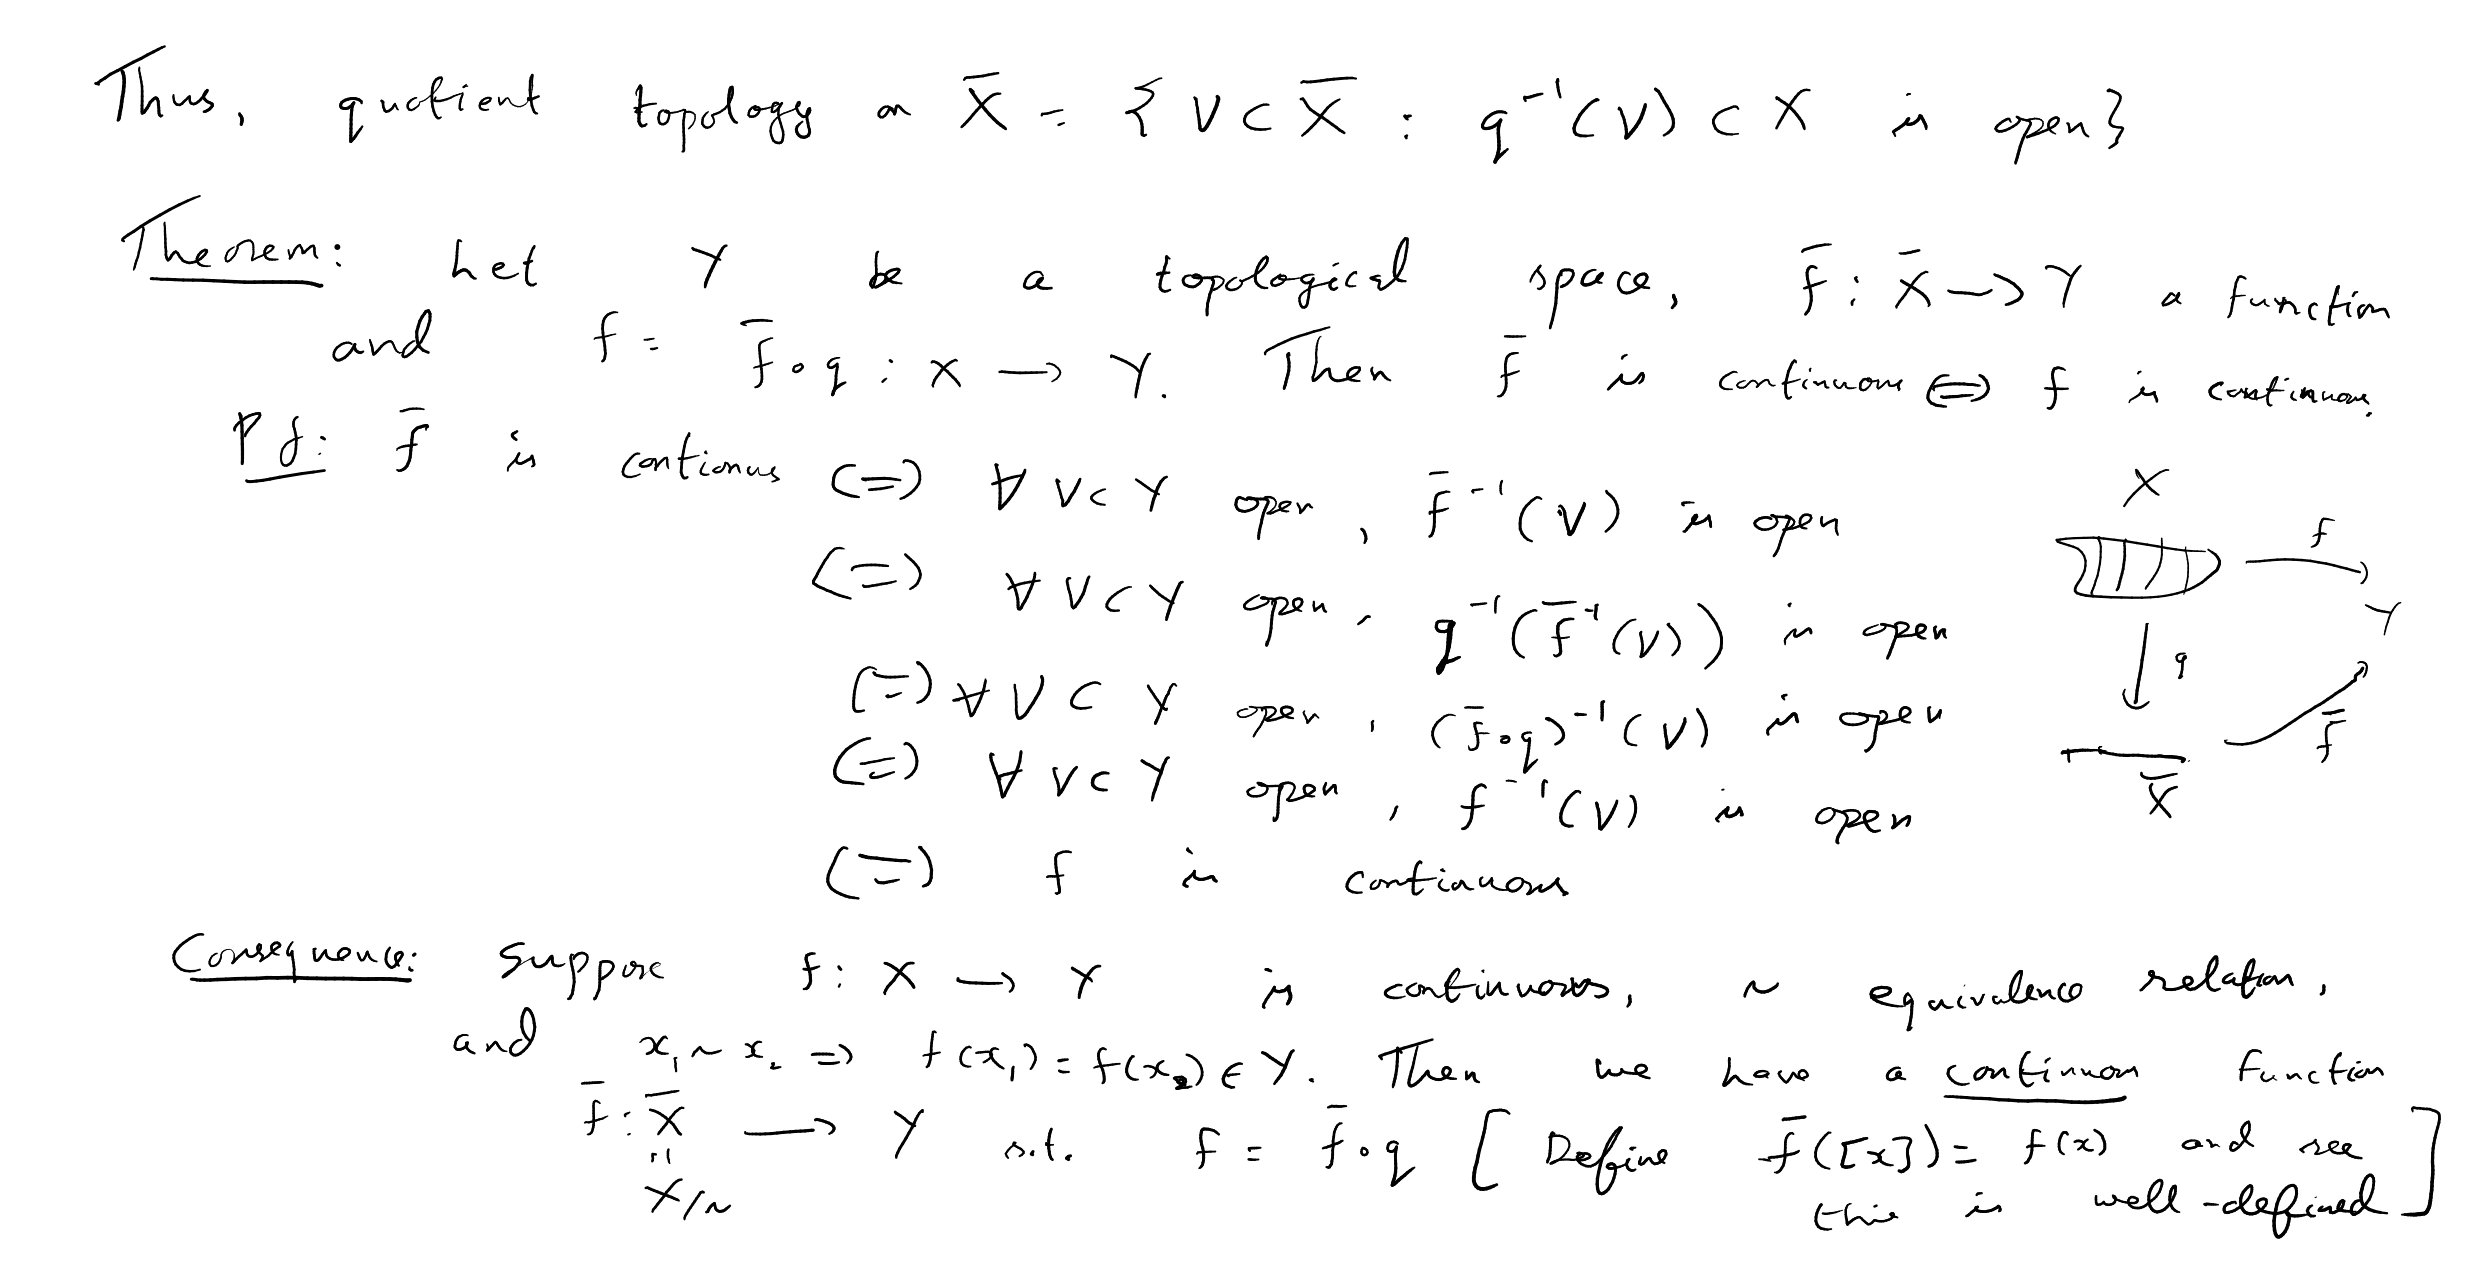 Thus, quotient topology on X̄ = { V ⊂ X̄ : q⁻¹(V) ⊂ X is open}
Theorem: Let Y be a topological space, f̄ : X̄ → Y a function
and f = f̄ ∘ q : X → Y. Then f̄ is continuous ⟺ f is continuous.
Pf: f̄ is contionus ⟺ ∀ V ⊂ Y open, f̄⁻¹(V) is open
⟺ ∀ V ⊂ Y open, q⁻¹(f̄⁻¹(V)) is open
⟺ ∀ V ⊂ Y open, (f̄ ∘ q)⁻¹(V) is open
⟺ ∀ V ⊂ Y open, f⁻¹(V) is open
⟺ f is continuous
X
f
Y
q
f̄
X̄
Consequence: Suppose f : X → Y is continuous, ~ equivalence relation,
and x₁ ~ x₂ ⟹ f(x₁) = f(x₂) ∈ Y. Then we have a continuous function
f̄ : X̄ → Y s.t. f = f̄ ∘ q [ Define f̄([x]) = f(x) and see
=
X/~ this is well-defined ]